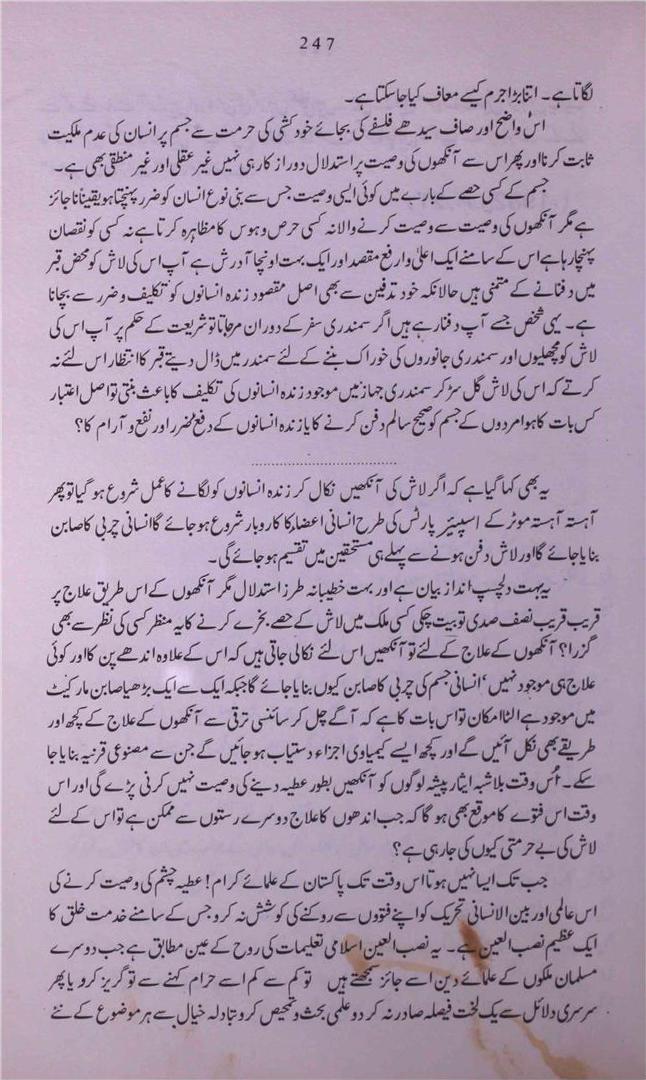 247
لگاتا ہے۔ اتنا بڑا جرم کیسے معاف کیا جا سکتا ہے۔
اس واضح اور صاف سیدھے فلسفے کی بجائے خودکشی کی حرمت سے جسم پر انسان کی عدم ملکیت
ثابت کرنا اور پھر اس سے آنکھوں کی وصیت پر استدلال دور از کار ہی نہیں غیر عقلی اور غیر منطقی بھی ہے۔
جسم کے کسی حصے کے بارے میں کوئی ایسی وصیت جس سے بنی نوع انسان کو ضرر پہنچتا ہو یقیناً ناجائز
ہے مگر آنکھوں کی وصیت سے وصیت کرنے والا نہ کسی حرص و ہوس کا مظاہرہ کرتا ہے نہ کسی کو نقصان
پہنچا رہا ہے اس کے سامنے ایک اعلیٰ و ارفع مقصد اور ایک بہت اونچا آدرش ہے آپ اس کی لاش کو محض قبر
میں دفنانے کے متمنی ہیں حالانکہ خود تدفین سے بھی اصل مقصود زندہ انسانوں کو تکلیف و ضرر سے بچانا
ہے۔ یہی شخص جسے آپ دفنا رہے ہیں اگر سمندری سفر کے دوران مرجاتا تو شریعت کے حکم پر آپ اس کی
لاش کو مچھلیوں اور سمندری جانوروں کی خوراک بننے کے لئے سمندر میں ڈال دیتے قبر کا انتظار اس لئے نہ
کرتے کہ اس کی لاش گل سڑ کر سمندری جہاز میں موجود زندہ انسانوں کی تکلیف کا باعث بنتی تو اصل اعتبار
کس بات کا ہوا مردوں کے جسم کو صحیح سالم دفن کرنے کا یا زندہ انسانوں کے دفع ضرر اور نفع و آرام کا؟
............................................
یہ بھی کہا گیا ہے کہ اگر لاش کی آنکھیں نکال کر زندہ انسانوں کو لگانے کا عمل شروع ہو گیا تو پھر
آہستہ آہستہ موٹر کے اسپئیر پارٹس کی طرح انسانی اعضاء کا کاروبار شروع ہو جائے گا انسانی چربی کا صابن
بنایا جائے گا اور لاش دفن ہونے سے پہلے ہی مستحقین میں تقسیم ہو جائے گی۔
یہ بہت دلچسپ انداز بیان ہے اور بہت خطیبانہ طرز استدلال مگر آنکھوں کے اس طریق علاج پر
قریب قریب نصف صدی تو بیت چکی کسی ملک میں لاش کے حصے بخرے کرنے کا یہ منظر کسی کی نظر سے بھی
گزرا؟ آنکھوں کے علاج کے لئے تو آنکھیں اس لئے نکالی جاتی ہیں کہ اس کے علاوہ اندھے پن کا اور کوئی
علاج ہی موجود نہیں‘ انسانی جسم کی چربی کا صابن کیوں بنایا جائے گا جبکہ ایک سے ایک بڑھیا صابن مارکیٹ
میں موجود ہے الٹا امکان تو اس بات کا ہے کہ آگے چل کر سائنسی ترقی سے آنکھوں کے علاج کے کچھ اور
طریقے بھی نکل آئیں گے اور کچھ ایسے کیمیاوی اجزاء دستیاب ہو جائیں گے جن سے مصنوعی قرنیہ بنایا جا
سکے۔ اُس وقت بلاشبہ ایثار پیشہ لوگوں کو آنکھیں بطور عطیہ دینے کی وصیت نہیں کرنی پڑے گی اور اس
وقت اس فتوے کا موقع بھی ہو گا کہ جب اندھوں کا علاج دوسرے رستوں سے ممکن ہے تو اس کے لئے
لاش کی بے حرمتی کیوں کی جا رہی ہے؟
جب تک ایسا نہیں ہوتا اس وقت تک پاکستان کے علمائے کرام! عطیہ چشم کی وصیت کرنے کی
اس عالمی اور بین الانسانی تحریک کو اپنے فتووں سے روکنے کی کوشش نہ کرو جس کے سامنے خدمت خلق کا
ایک عظیم نصب العین ہے۔ یہ نصب العین اسلامی تعلیمات کی روح کے عین مطابق ہے جب دوسرے
مسلمان ملکوں کے علمائے دین اسے جائز سمجھتے ہیں تو کم سے کم اسے حرام کہنے سے تو گریز کرو یا پھر
سرسری دلائل سے یک لخت فیصلہ صادر نہ کر دو علمی بحث و تمحیص کرو تبادلہ خیال سے ہر موضوع کے نئے